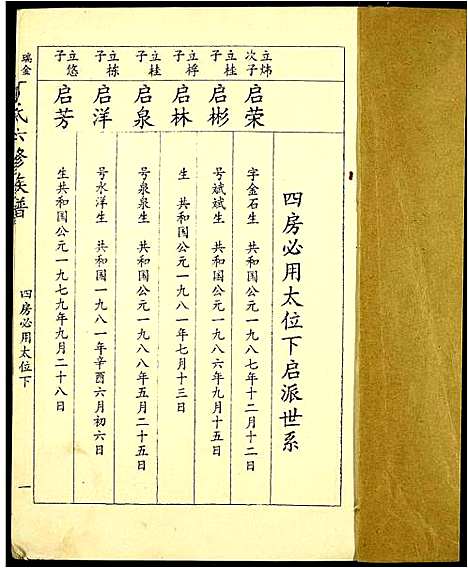 四房必用太位下启派世系
立炜次子
启荣
字金石生 共和国公元一九八七年十二月十二日
立桂子
启彬
号斌斌生 共和国公元一九八六年九月十五日
立桴子
启林
生 共和国公元一九八一年七月十三日
立桂子
启泉
号泉泉生 共和国公元一九八八年五月二十五日
立栋子
启洋
号水洋生 共和国一九八一年辛酉六月初六日
立悠子
启芳
生共和国公元一九七九年九月二十八日
瑞金
氏六修族谱
四房必用太位下
一